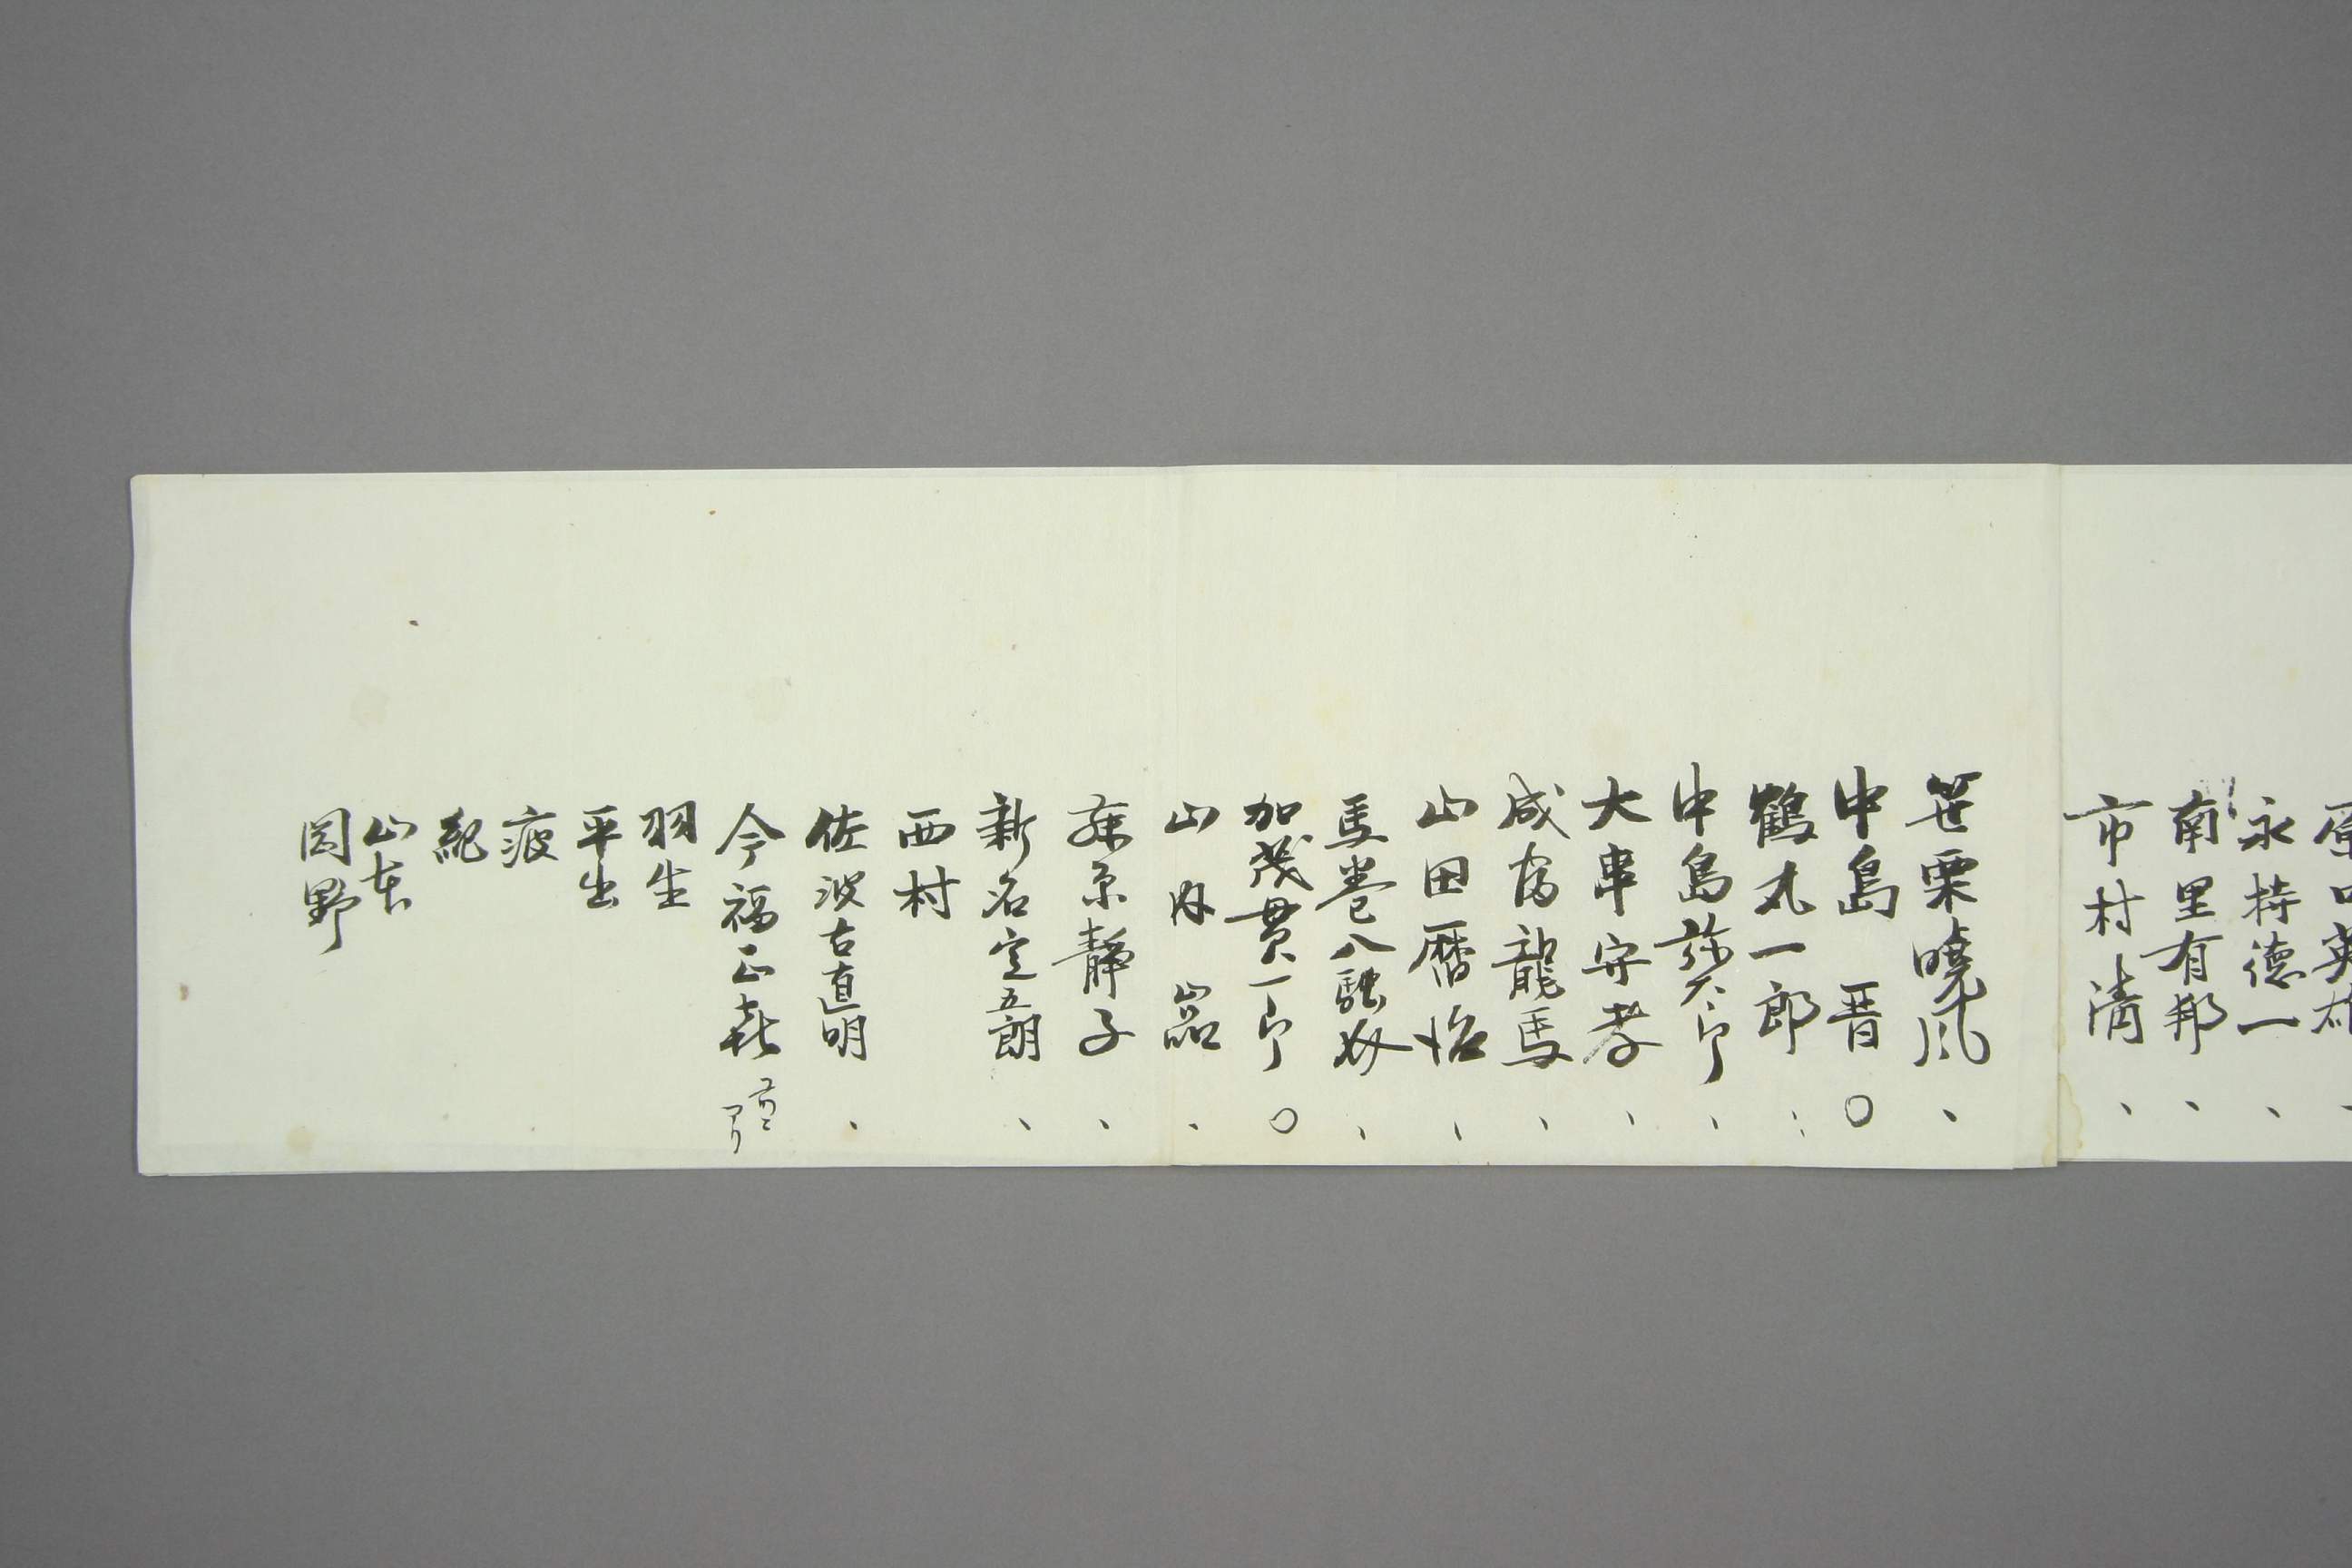 原口英雄、
永持德一、
南里有邦、
市村清、
笹栗曉風、
中島晋○
鶴丸一郎、
中島弥六郎、
大串守孝、
成富龍馬、
山田暦治、
馬巻八
加茂貫一郎○
山内嵓、
静子、
新名定五朗、
西村
佐波古直明、
今福正喜
羽生
平出
疲
紀
山本
岡野